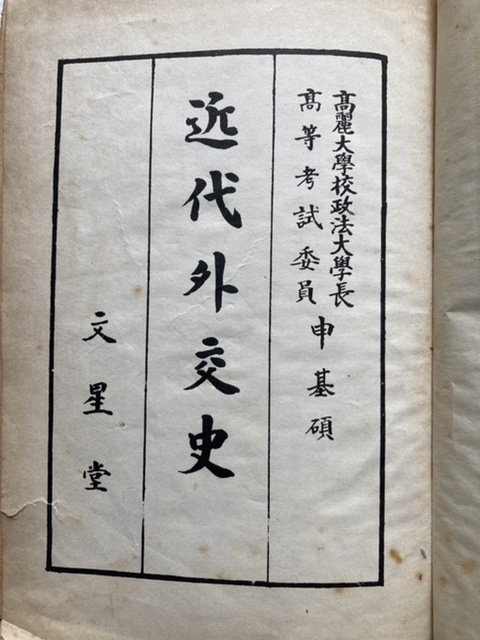 高麗大學校政法大學長
高等考試委員
申基碩
近代外交史
文星堂